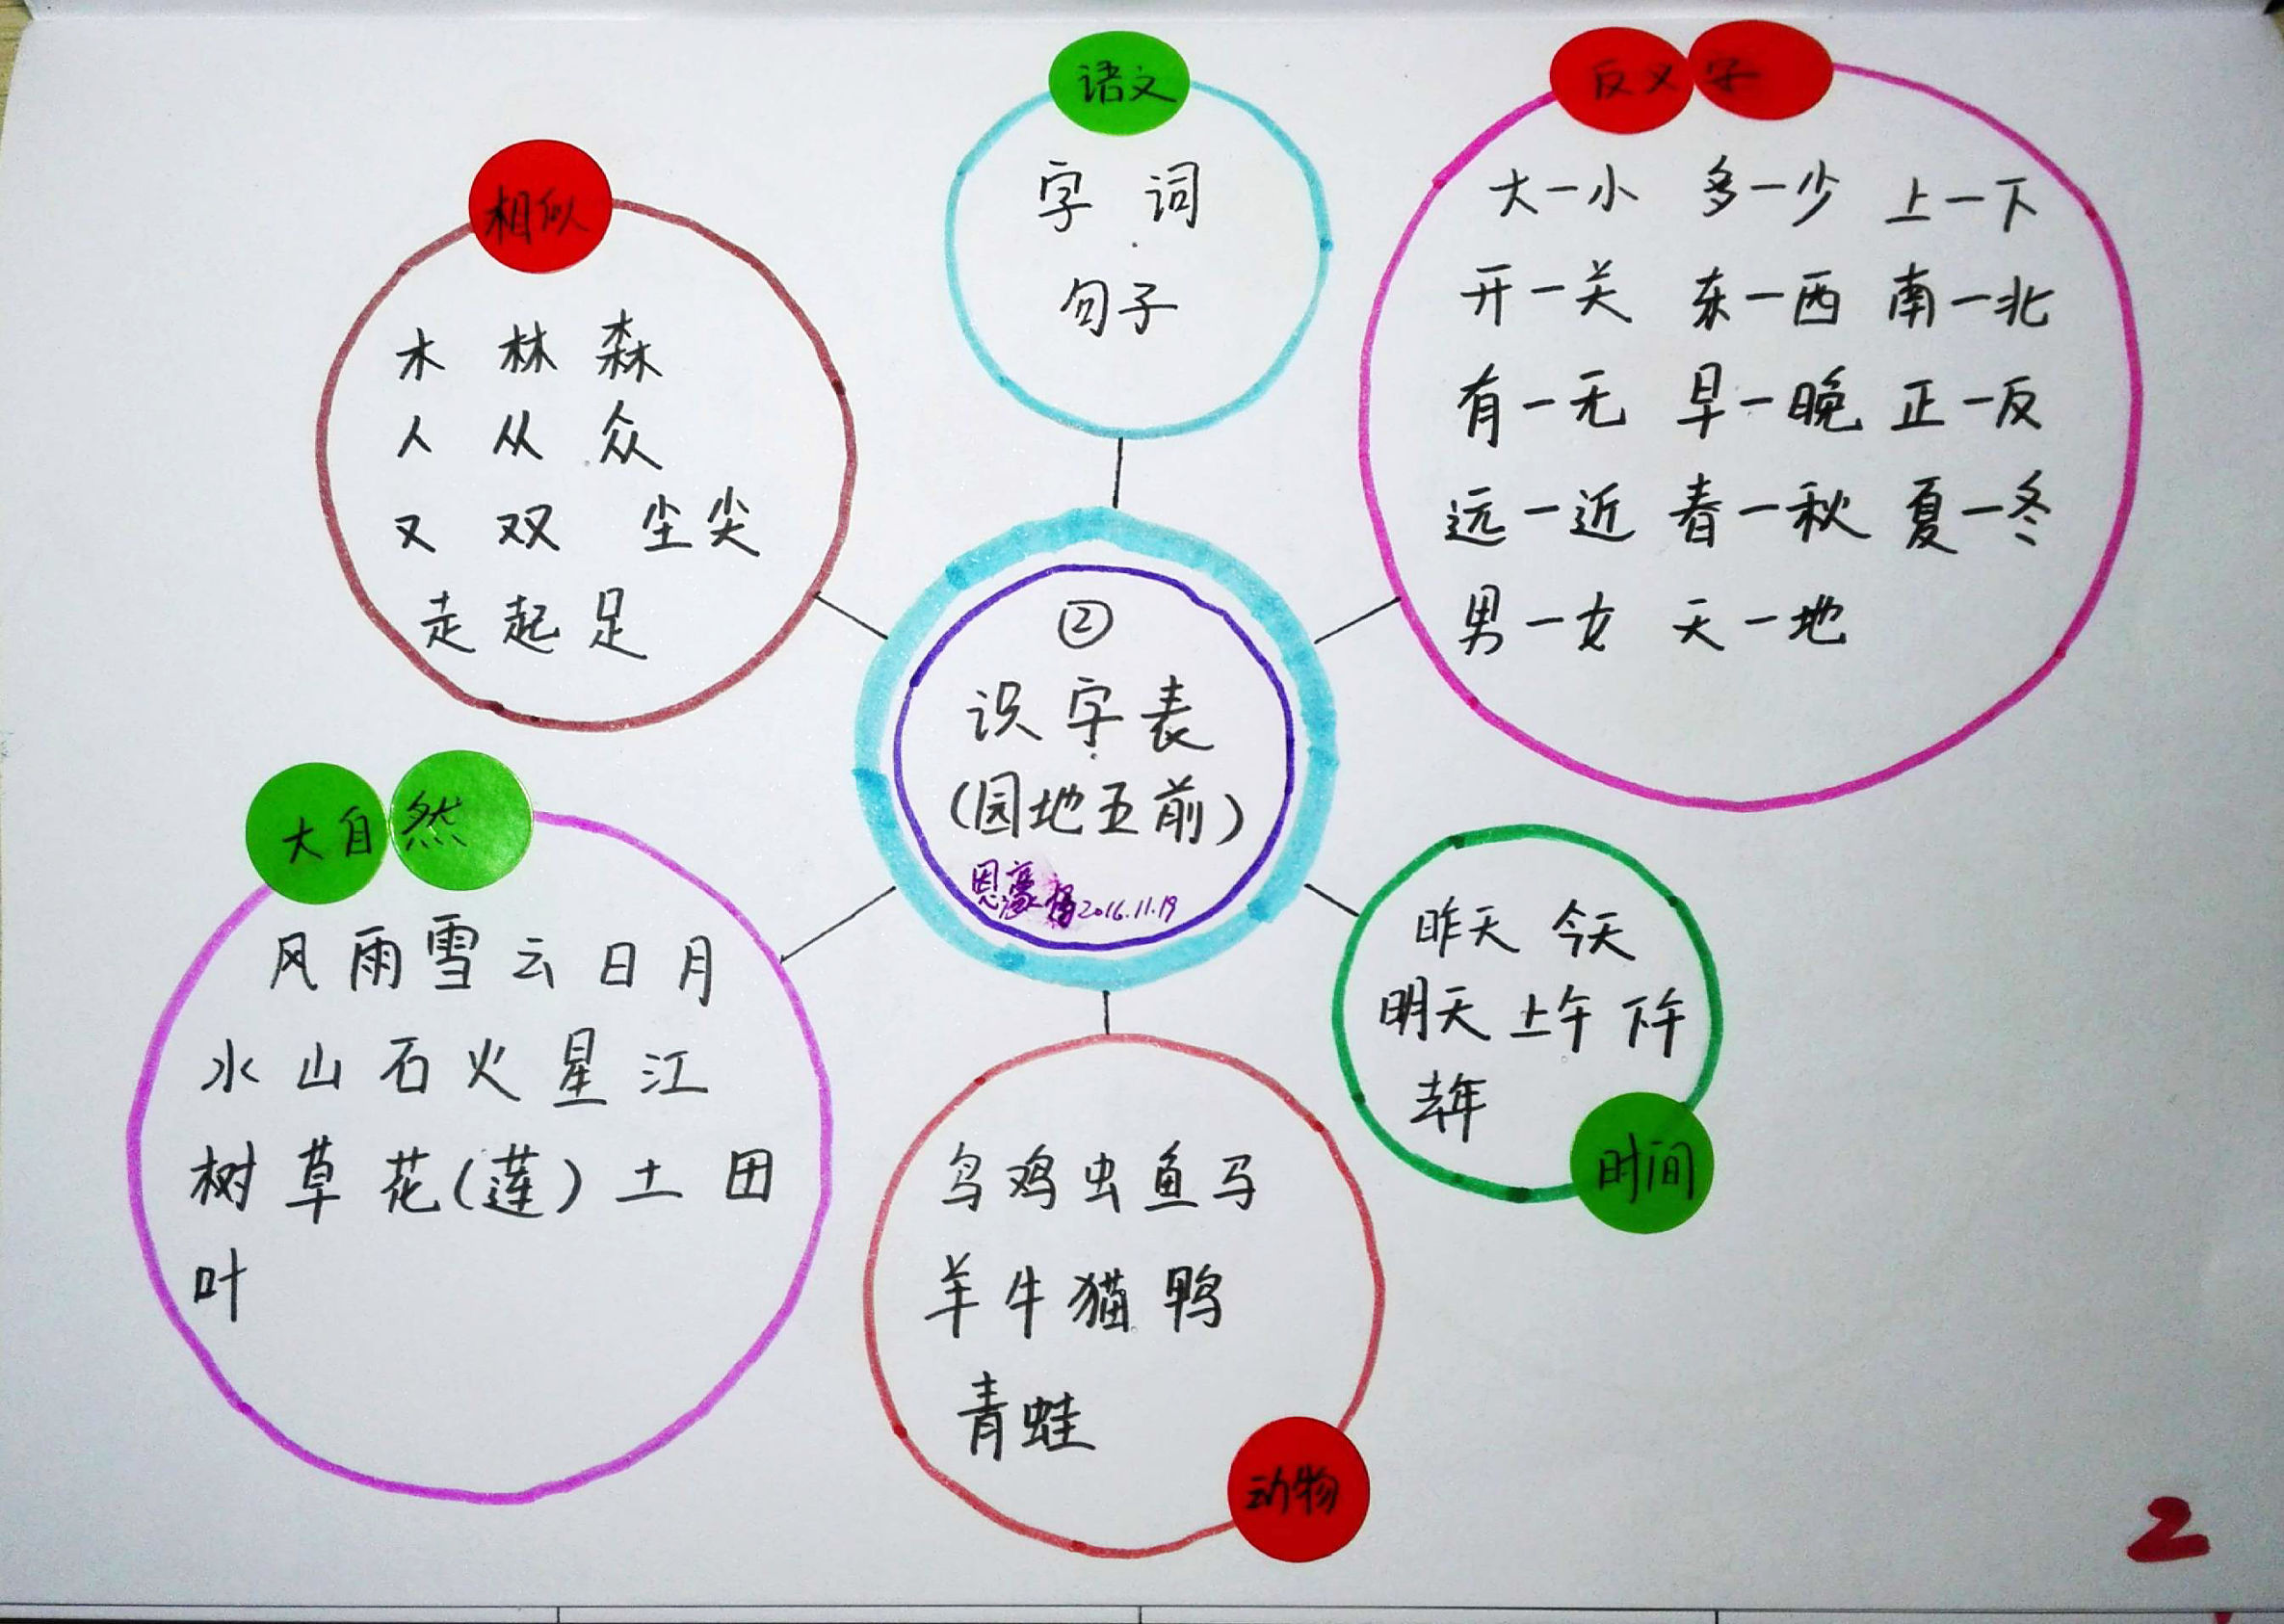 语文
字 词
句子
反义字
大一小 多一少 上一下
开一关 东一西 南一北
有一无 早一晚 正一反
远一近 春一秋 夏一冬
男一女 天一地
相似
木 林 森
人 从 众
又 双 尘尖
走 起 足
②
识字表
(园地五前)
恩豪 2016.11.19
大自然
风 雨 雪 云 日 月
水 山 石 火 星 江
树 草 花(莲) 土 田
叶
昨天 今天
明天 上午 下午
去年
时间
鸟 鸡 虫 鱼 马
羊 牛 猫 鸭
青蛙
动物
2